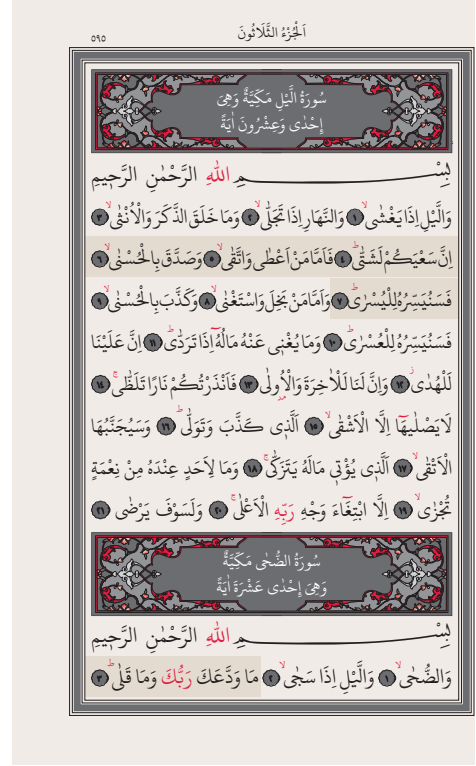 اَلْجُزْءُ الثَّلَاثُونَ
٥٩٥
سُورَةُ الَّيْلِ مَكِّيَّةٌ وَهِىَ
اِحْدٰى وَعِشْرُونَ اٰيَةً
بِسْمِ اللّٰهِ الرَّحْمٰنِ الرَّحِيمِ
وَالَّيْلِ اِذَا يَغْشٰىۙ ١ وَالنَّهَارِ اِذَا تَجَلّٰىۙ ٢ وَمَا خَلَقَ الذَّكَرَ وَالْاُنْثٰىۙ ٣
اِنَّ سَعْيَكُمْ لَشَتّٰىۜ ٤ فَاَمَّا مَنْ اَعْطٰى وَاتَّقٰىۙ ٥ وَصَدَّقَ بِالْحُسْنٰىۙ ٦
فَسَنُيَسِّرُهُ لِلْيُسْرٰىۜ ٧ وَاَمَّا مَنْ بَخِلَ وَاسْتَغْنٰىۙ ٨ وَكَذَّبَ بِالْحُسْنٰىۙ ٩
فَسَنُيَسِّرُهُ لِلْعُسْرٰىۜ ١٠ وَمَا يُغْنِى عَنْهُ مَالُهُٓ اِذَا تَرَدّٰىۜ ١١ اِنَّ عَلَيْنَا
لَلْهُدٰىۘ ١٢ وَاِنَّ لَنَا لَلْاٰخِرَةَ وَالْاُو۫لٰى ١٣ فَاَنْذَرْتُكُمْ نَارًا تَلَظّٰىۚ ١٤
لَا يَصْلٰيهَٓا اِلَّا الْاَشْقٰىۙ ١٥ اَلَّذِى كَذَّبَ وَتَوَلّٰىۜ ١٦ وَسَيُجَنَّبُهَا
الْاَتْقٰىۙ ١٧ اَلَّذِى يُؤْتِى مَالَهُ يَتَزَكّٰىۚ ١٨ وَمَا لِاَحَدٍ عِنْدَهُ مِنْ نِعْمَةٍ
تُجْزٰىۙ ١٩ اِلَّا ابْتِغَٓاءَ وَجْهِ رَبِّهِ الْاَعْلٰىۚ ٢٠ وَلَسَوْفَ يَرْضٰى ٢١
سُورَةُ الضُّحٰى مَكِّيَّةٌ
وَهِىَ اِحْدٰى عَشْرَةَ اٰيَةً
بِسْمِ اللّٰهِ الرَّحْمٰنِ الرَّحِيمِ
وَالضُّحٰىۙ ١ وَالَّيْلِ اِذَا سَجٰىۙ ٢ مَا وَدَّعَكَ رَبُّكَ وَمَا قَلٰىۜ ٣